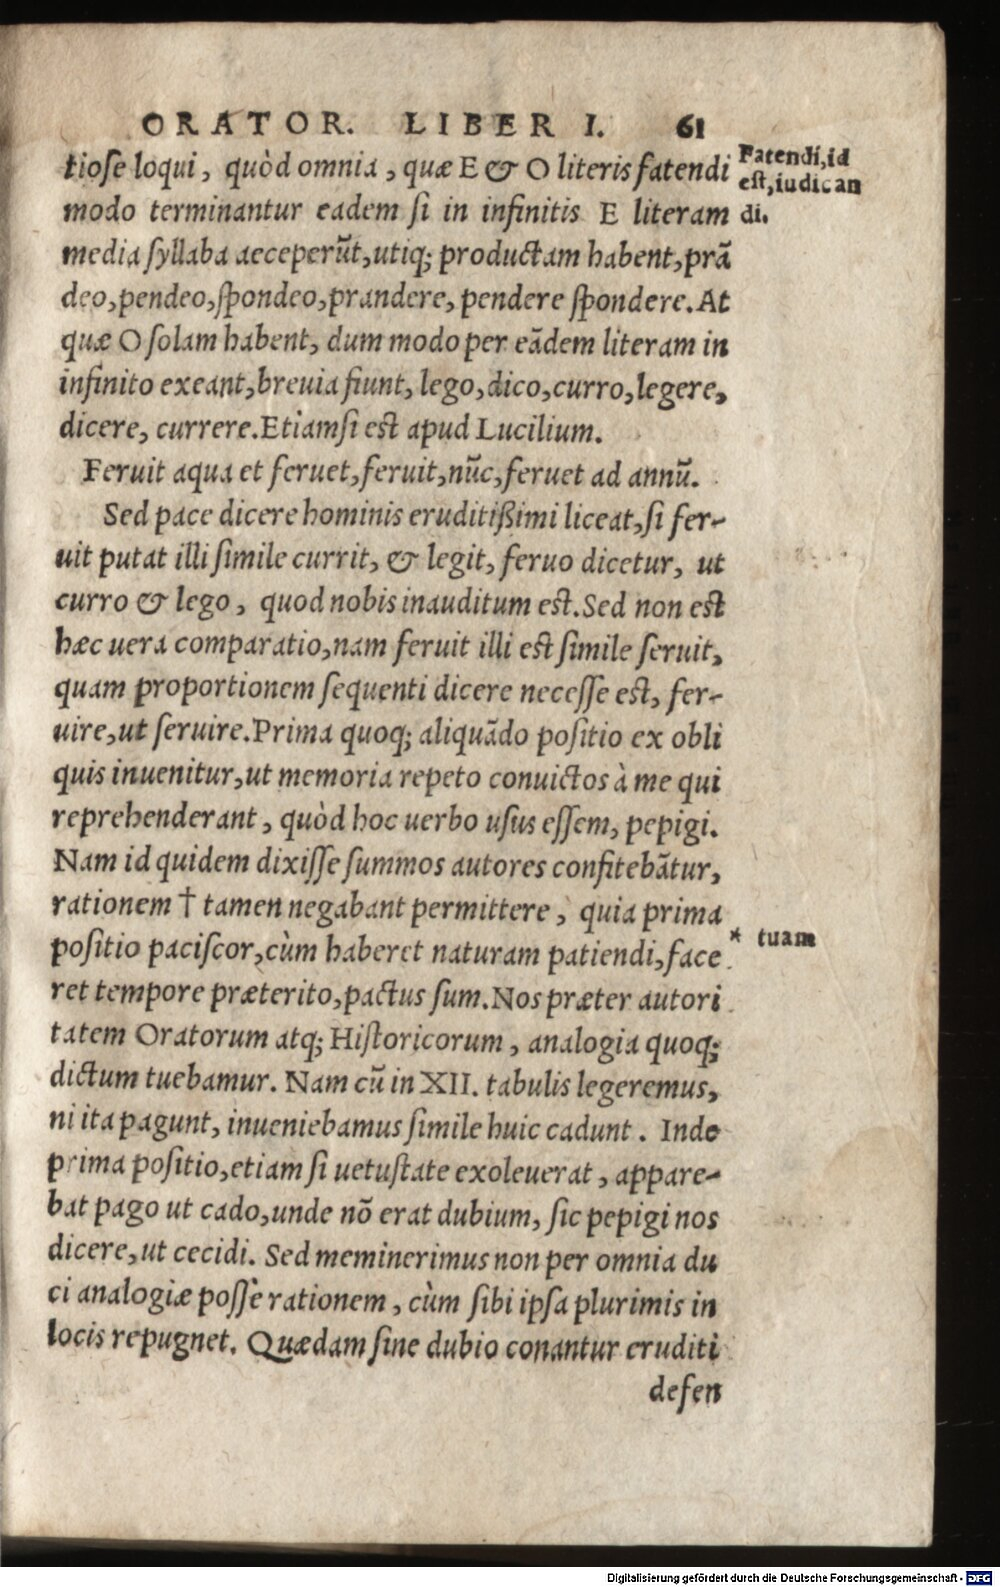 ORATOR. LIBER I. 61
tiose loqui, quòd omnia, quæ E & O literis fatendi
modo terminantur eadem si in infinitis E literam
media syllaba aeceperũt, utiq; productam habent, prã
deo, pendeo, spondeo, prandere, pendere spondere. At
quæ O solam habent, dum modo per eãdem literam in
infinito exeant, breuia fiunt, lego, dico, curro, legere,
dicere, currere. Etiamsi est apud Lucilium.
Feruit aqua et feruet, feruit, nũc, feruet ad annũ.
Sed pace dicere hominis eruditißimi liceat, si fer-
uit putat illi simile currit, & legit, feruo dicetur, ut
curro & lego, quod nobis inauditum est. Sed non est
hæc uera comparatio, nam feruit illi est simile seruit,
quam proportionem sequenti dicere necesse est, fer-
uire, ut seruire. Prima quoq; aliquãdo positio ex obli
quis inuenitur, ut memoria repeto convictos à me qui
reprehenderant, quòd hoc uerbo usus essem, pepigi.
Nam id quidem dixisse summos autores confitebãtur,
rationem † tamen negabant permittere, quia prima
positio paciscor, cùm haberet naturam patiendi, face
ret tempore præterito, pactus sum. Nos præter autori
tatem Oratorum atq; Historicorum, analogia quoq;
dictum tuebamur. Nam cũ in XII. tabulis legeremus,
ni ita pagunt, inueniebamus simile huic cadunt. Inde
prima positio, etiam si uetustate exoleuerat, appare-
bat pago ut cado, unde nõ erat dubium, sic pepigi nos
dicere, ut cecidi. Sed meminerimus non per omnia du
ci analogiæ possè rationem, cùm sibi ipsa plurimis in
locis repugnet. Quædam sine dubio conantur eruditi
defen
Fatendi, id
est, iudican
di.
* tuam
Digitalisierung gefördert durch die Deutsche Forschungsgemeinschaft - DFG